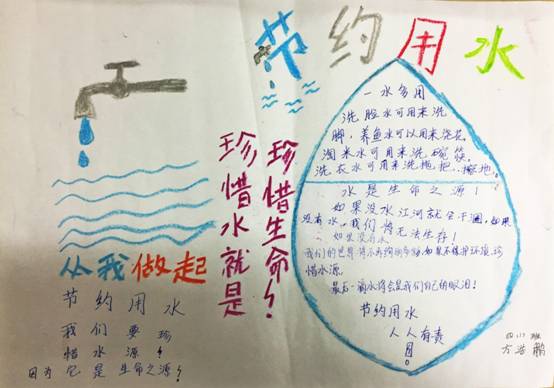 节约用水
一水多用
洗脸水可用来洗
脚，养鱼水可以用来浇花
淘米水可用来洗碗筷，
洗衣水可用来洗拖把..擦地。
水是生命之源！
如果没水江河就会干涸，如果
没有水，我们将无法生存！
如果没有水
惜水源。
最后一滴水将会是我们自己的眼泪！
节约用水
人人有责！
珍惜生命！
珍惜水就是
从我做起
节约用水
我们要珍
惜水源！
因为它是生命之源！
四.(1)班
方浩鹏